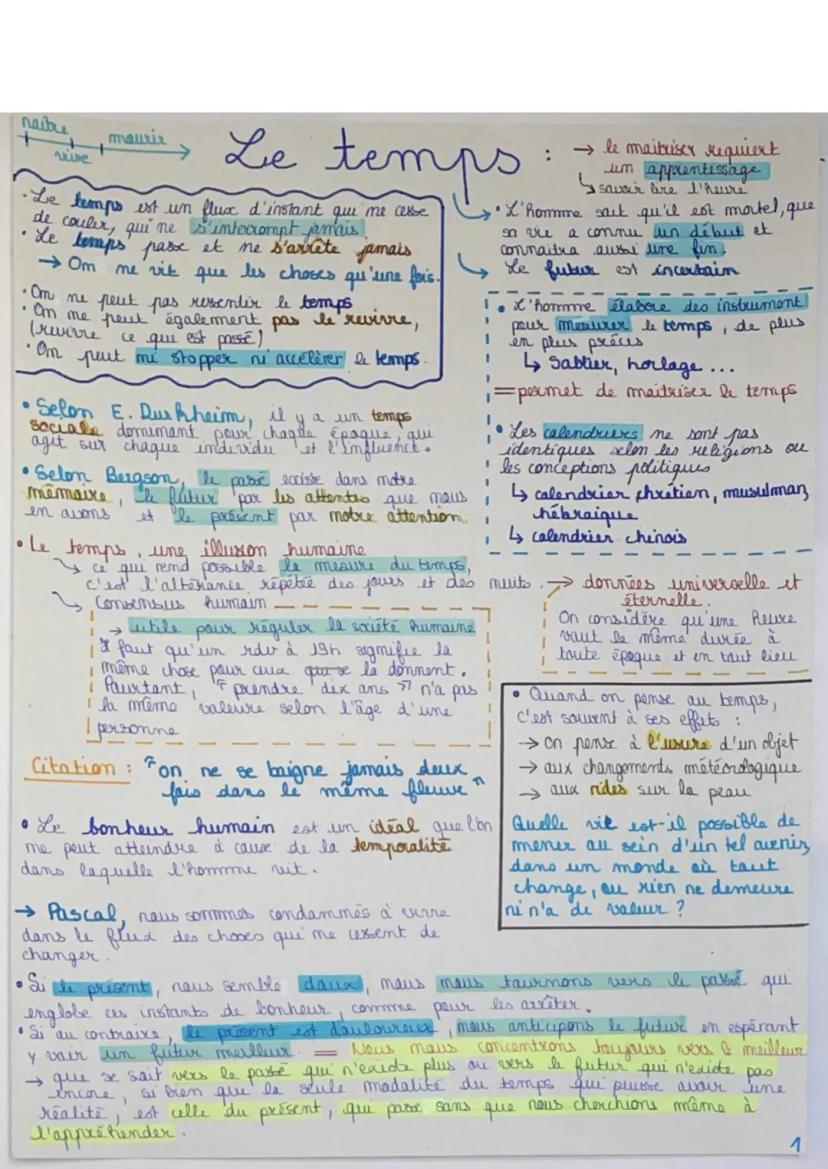 naître
vivre
mourir
Le temps :
→ le maitriser requiert
un apprentissage
↳ savoir lire l'heure
• Le temps est un flux d'instant qui ne cesse
de couler, qui ne s'interrompt jamais.
• Le temps passe et ne s'arrête jamais
→ On ne vit que les choses qu'une fois.
• On ne peut pas ressentir le temps
• On ne peut également pas le revivre,
(revivre ce qui est passé)
• On peut ni stopper ni accélérer le temps.
• L'homme sait qu'il est mortel, que
sa vie a connu un début et
connaitra aussi une fin.
Le futur est incertain
• L'homme élabore des instrument
pour mesurer le temps, de plus
en plus précis
↳ Sablier, horlage ...
= permet de maitriser le temps
• Les calendriers ne sont pas
identiques selon les religions ou
les conceptions politiques
↳ calendrier chrétien, musulman,
hébraique
↳ calendrier chinois
• Selon E. Durkheim, il y a un temps
sociale dominant pour chaque époque, qui
agit sur chaque individu et l'influence.
• Selon Bergson, le passé existe dans notre
mémoire, le futur par les attentes que nous
en avons et le présent par notre attention
• Le temps, une illusion humaine
↳ ce qui rend possible la mesure du temps,
c'est l'altérance répétée des jours et des nuits. → données universelle et
éternelle.
On considère qu'une heure
vaut la même durée à
toute époque et en tout lieu
↳ Consensus humain
→ utile pour réguler la société humaine
Il faut qu'un rdv à 19h signifie la
même chose pour ceux qui se la donnent.
Pourtant, "prendre dix ans" n'a pas
la même valeure selon l'âge d'une
personne
Citation : "on ne se baigne jamais deux
fois dans le même fleuve"
• Le bonheur humain est un idéal que l'on
ne peut atteindre à cause de la temporalité
dans laquelle l'homme vit.
→ Pascal, nous sommes condamnés à vivre
dans le flux des choses qui ne cessent de
changer.
• Quand on pense au temps,
c'est souvent à ses effets :
→ on pense à l'usure d'un objet
→ aux changements météorologique
→ aux rides sur la peau
Quelle vie est-il possible de
mener au sein d'un tel avenir,
dans un monde où tout
change, ou rien ne demeure
ni n'a de valeur ?
• Si le présent, nous semble doux, nous nous tournons vers le passé qui
englobe ces instants de bonheur, comme pour les arrêter.
• Si au contraire, le présent est douloureux, nous anticipons le futur en espérant
y voir un futur meilleur. = Nous nous concentrons toujours vers le meilleur
→ que se soit vers le passé qui n'existe plus ou vers le futur qui n'existe pas
encore, si bien que la seule modalité du temps qui puisse avoir une
réalité, est celle du présent, qui passe sans que nous cherchions même à
l'appréhender.
1